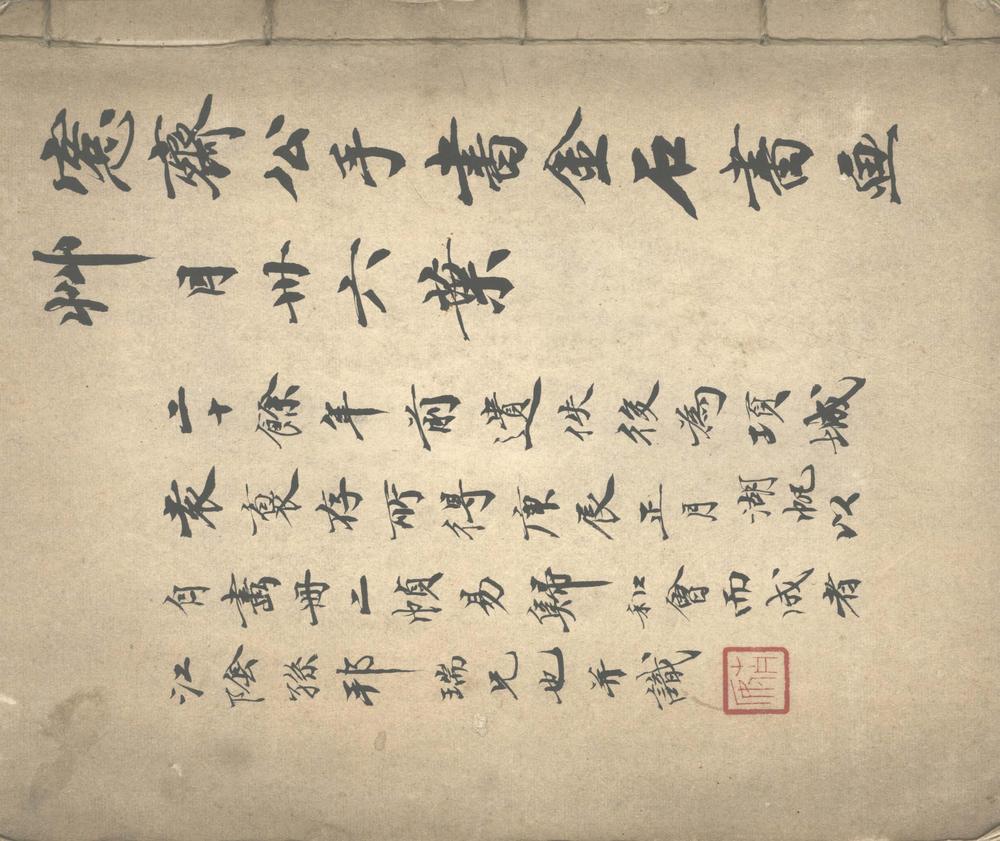 愙齋公手書金石書畫
艸目卅六葉
二十餘年前遺佚後為項城
袁裒存所得庚辰正月湖帆以
自畫冊二幀易歸和會而成者
江陰孫邦瑞兄也并識